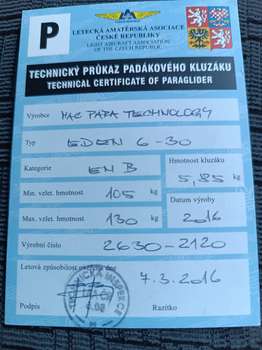 P
LETECKÁ AMATÉRSKÁ ASOCIACE
ČESKÉ REPUBLIKY
LIGHT AIRCRAFT ASSOCIATION
OF THE CZECH REPUBLIC
TECHNICKÝ PRŮKAZ PADÁKOVÉHO KLUZÁKU
TECHNICAL CERTIFICATE OF PARAGLIDER
Výrobce MAC PARA TECHNOLOGY
Typ EDEN 6-30
Kategorie EN B
Hmotnost kluzáku 5,85 kg
Min. vzlet. hmotnost 105 kg
Datum výroby
Max. vzlet. hmotnost 130 kg 2016
Výrobní číslo 2630-2120
Letová způsobilost ověřena dne
7.3.2016
Podpis Razítko